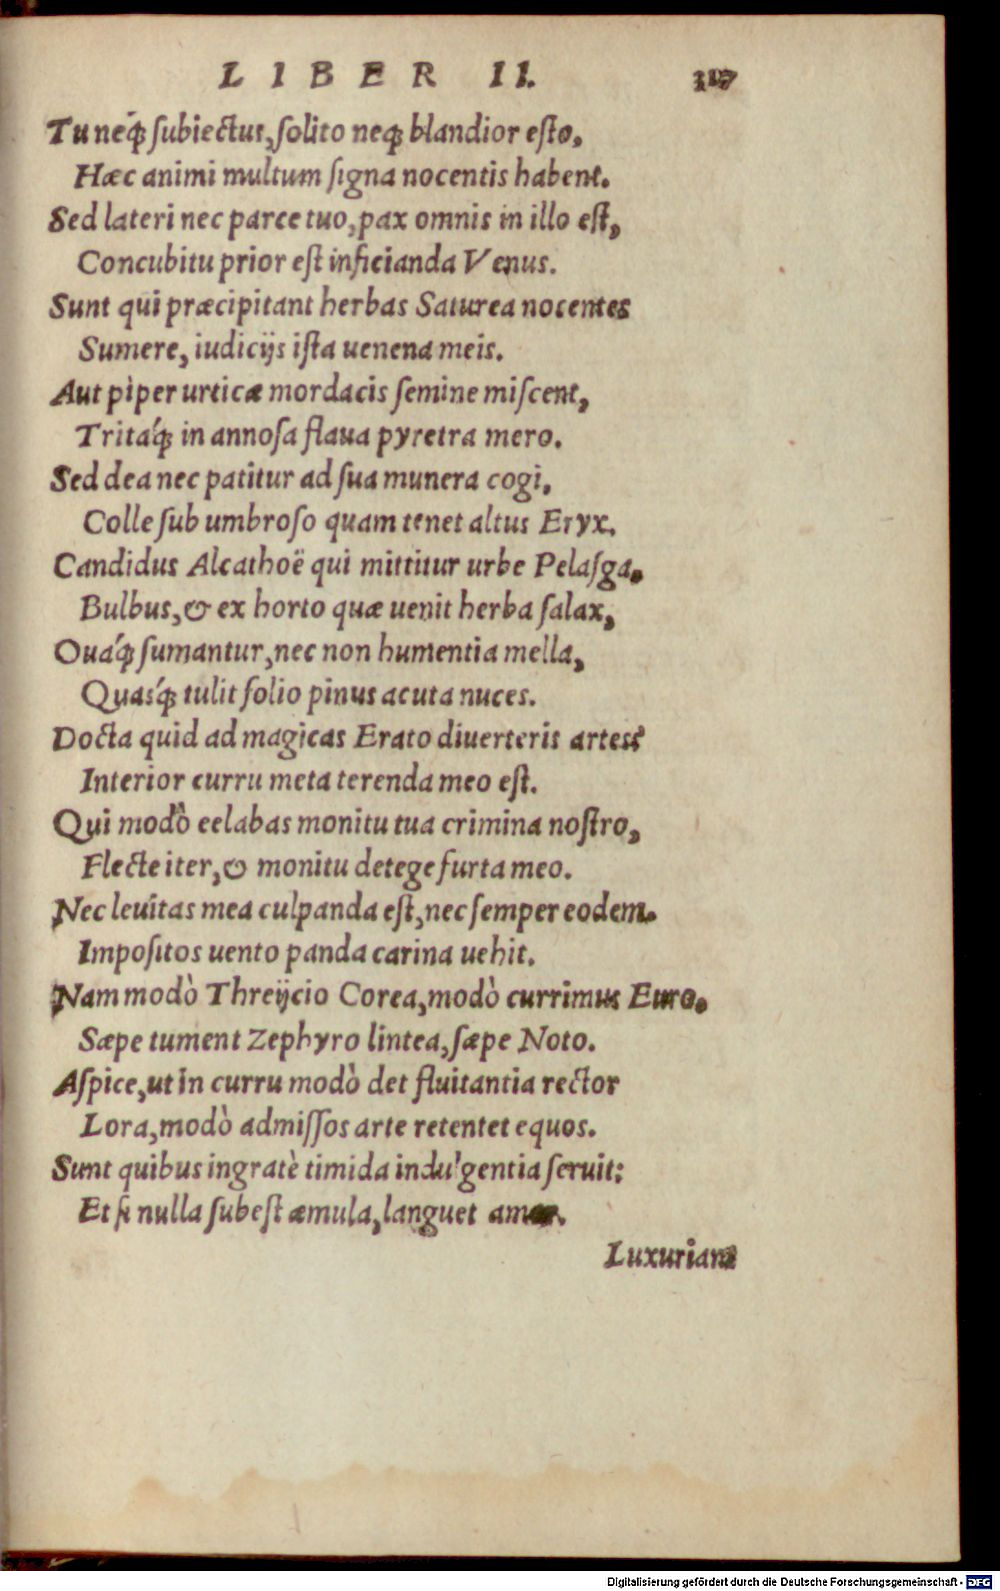 LIBER II.
Tu neq́ꝫ ſubiectus, ſolito neqꝫ blandior eſto,
Hæc animi multum ſigna nocentis habent.
Sed lateri nec parce tuo, pax omnis in illo eſt,
Concubitu prior eſt inficianda Venus.
Sunt qui præcipitant herbas Saturea nocentes
Sumere, iudicijs iſta uenena meis.
Aut pìper urticæ mordacis ſemine miſcent,
Tritaq́ꝫ in annoſa flaua pyretra mero.
Sed dea nec patitur ad ſua munera cogi,
Colle ſub umbroſo quam tenet altus Eryx.
Candidus Alcathoë qui mittitur urbe Pelaſga,
Bulbus, & ex horto quæ uenit herba ſalax,
Ouaq́ꝫ ſumantur, nec non humentia mella,
Quasq́ꝫ tulit folio pinus acuta nuces.
Docta quid ad magicas Erato diuerteris artes?
Interior curru meta terenda meo eſt.
Qui modò eelabas monitu tua crimina noſtro,
Flecte iter, & monitu detege furta meo.
Nec leuitas mea culpanda eſt, nec ſemper eodem.
Impoſitos uento panda carina uehit.
Nam modò Threijcio Corea, modò currimus Euro.
Sæpe tument Zephyro lintea, ſæpe Noto.
Aſpice, ut in curru modò det fluitantia rector
Lora, modò admiſſos arte retentet equos.
Sunt quibus ingratè timida indulgentia ſeruit:
Et ſi nulla ſubeſt æmula, languet amor.
Luxuriant
Digitalisierung gefördert durch die Deutsche Forschungsgemeinschaft - DFG